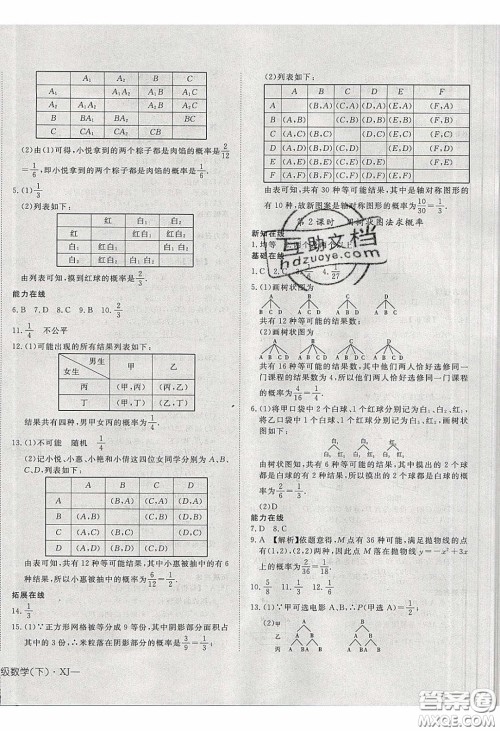 A₁ A₂ B C
A₁ A₁A₂ A₁B A₁C
A₂ A₂A₁ A₂B A₂C
B BA₁ BA₂ BC
C CA₁ CA₂ CB
(2)由(1)可得,小悦拿到的两个粽子都是肉馅的概率是2/12
=1/6,即小悦拿到的两个粽子都是肉馅的概率是1/6.
5.(1)1/3
(2)列表如下:
红 白₁ 白₂
红 红白₁ 红白₂
白₁ 白₁红 白₁白₂
白₂ 白₂红 白₂白₁
由列表可知,摸到红球的概率是2/3.
能力在线
6.B 7.D 8.C 9.B 10.2/3
11.1/4 不公平
12.(1)可能出现的所有结果列表如下:
男生 女生 甲 乙
丙 (甲,丙) (乙,丙)
丁 (甲,丁) (乙,丁)
结果共有四种,男甲女丙的概率为1/4.
13.(1)不可能 随机 1/4
(2)记小悦、小惠、小艳和小倩这四位女同学分别为A、B、
C、D,列表如下:
A B C D
A (B,A) (C,A) (D,A)
B (A,B) (C,B) (D,B)
C (A,C) (B,C) (D,C)
D (A,D) (B,D) (C,D)
由表可知,共有12种等可能结果,其中小惠被抽中的有6
种结果,所以小惠被抽中的概率为6/12=1/2.
拓展在线
14.1/3
15.(1)∵正方形网格被等分成9等份,其中阴影部分面积
占其中的3份,∴米粒落在阴影部分的概率是3/9=1/3;
级数学(下)·XJ—
(2)列表如下:
A B C D E F
A (B,A) (C,A) (D,A) (E,A) (F,A)
B (A,B) (C,B) (D,B) (E,B) (F,B)
C (A,C) (B,C) (D,C) (E,C) (F,C)
D (A,D) (B,D) (C,D) (E,D) (F,D)
E (A,E) (B,E) (C,E) (D,E) (F,E)
F (A,F) (B,F) (C,F) (D,F) (E,F)
由表可知,共有30种等可能结果,其中是轴对称图形的
有10种,故新图案是轴对称图形的概率为10/30=1/3.
第2课时 用树状图法求概率
新知在线
1.均等
基础在线
1.C 2.C 3. 4.4/27
4.(1)画树状图为
A B C D
B C D A C D A B D A B C
共有12种等可能的结果数;
(2)画树状图为
A B C D
A B C D A B C D A B C D A B C D
共有16种等可能的结果数,其中他们两人恰好选修同一
门课程的结果数为4,所以他们两人恰好选修同一门课程
的概率为4/16=1/4.
6.(1)将甲口袋中2个白球、1个红球分别记为白₁、白₂、红₁,
将乙口袋中1个白球、1个红球分别记为白、红₂,
白₁ 白₂ 红₁
白 红₂ 白 红₂ 白 红₂
由树状图知,共有6种等可能的结果,其中摸出的2个球
都是白球的有2种结果,所以摸出的2个球都是白球的概
率为2/6=1/3.
(2)D
能力在线
7.D 8.C
9.A 【解析】依题意得,M点有36种可能,满足抛物线的点
有(1,2),(2,2)两种,因此点M落在抛物线y=−x²+3x
上的概率为2/36=1/18.
10.5/8 11.1/6 12.1/3
13.(1)∵甲可选电影A或B,∴P(甲选A)=1/2.
(2)
甲 A B
乙 A B A B
丙 A B A B A B A B
互助文档
hdzuoye.com
答案圈
MXQE.COM